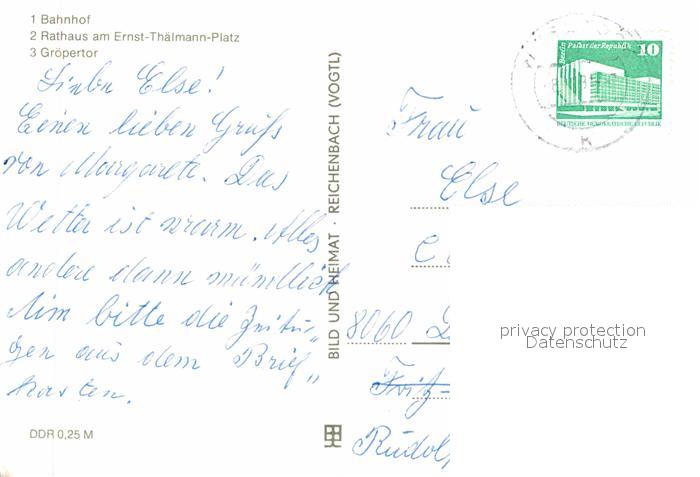 1 Bahnhof
2 Rathaus am Ernst-Thälmann-Platz
3 Gröpertor
Liebe Else!
Einen lieben Gruß
von Margarete. Das
Wetter ist warm. Alles
andere dann mündlich
Nim bitte die Zeitun„
gen aus dem Brief„
kasten.
DDR 0,25 M
BILD UND HEIMAT REICHENBACH (VOGTL)
Berlin Palast der Republik 10
DEUTSCHE DEMOKRATISCHE REPUBLIK
Frau
Else
8060 D
Fritz-
Rudol
privacy protection
Datenschutz